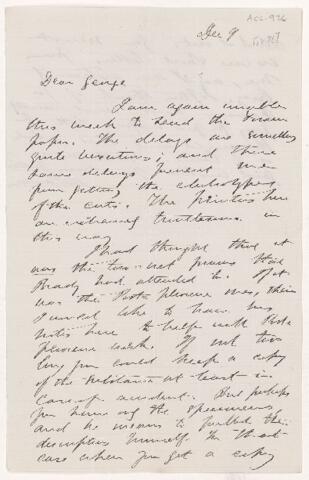 Acc-926
Dec 9
Dear George
I am again unable
this week to send the
paper. The delays are something
quite vexatious; and these
same delays prevent me
from getting the electrotypes
of the cuts. The printers here
are extremely troublesome in
this way
I had thought that it
was the
Brady had attended to. If it
was the ones, then
I would like to have my
notes here to help with
work. If not too
busy you could keep a copy
of the at least in
case of accident. But perhaps
you have all the specimens
and he means to publish the
description himself. In that
case when you get a copy